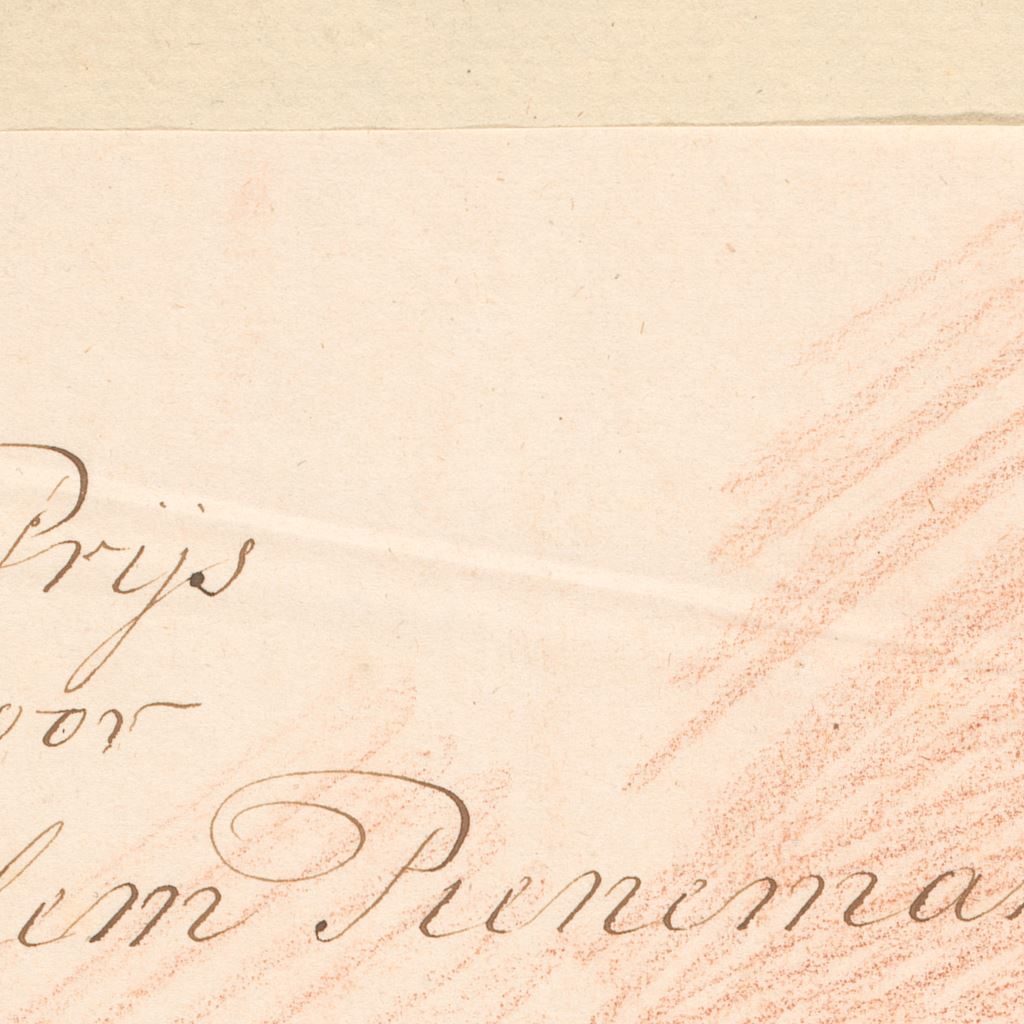 Prijs
oor
lem Pieneman